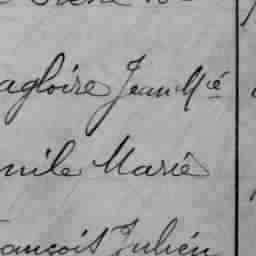 agloire Jean Mié
mile Marie
rançois Julien